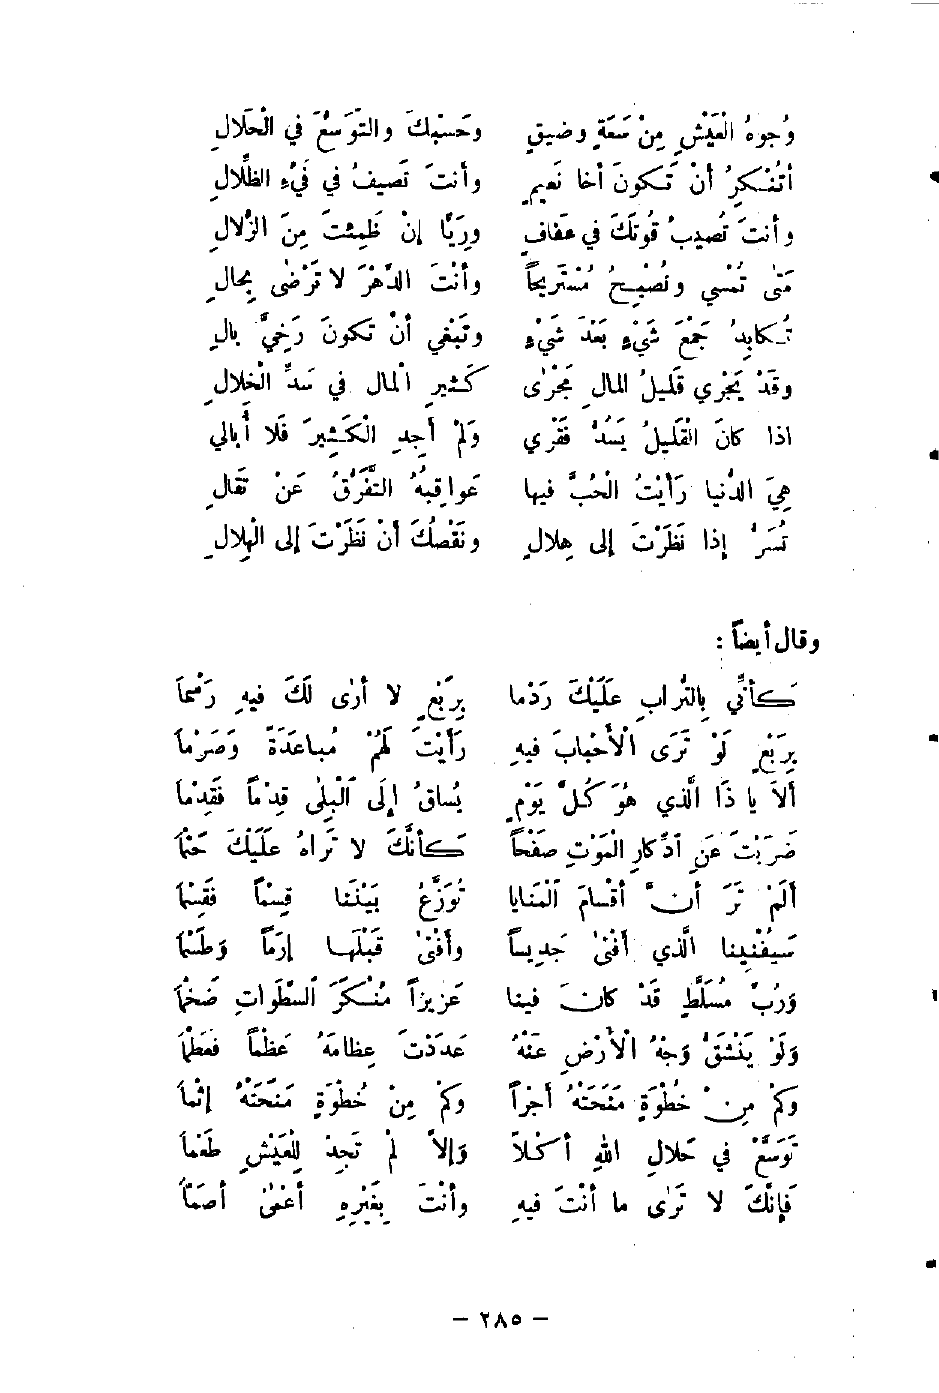 وُجوهُ الْعَيْشِ مِنْ سَعَةٍ وضيقٍ وحَسْبكَ والتَوَسّعَ في الْحَلالِ
أتُنْكِرُ أنْ تَكونَ أخا نَعيمٍ وأنتَ تَصيفُ في فَيْءِ الظِّلالِ
وأنتَ تُصيبُ قُوتَكَ في عَفافٍ ورِيًّا إنْ ظَمِئتَ مِنَ الزُّلالِ
مَتى تُمْسي وتُصْبِحُ مُسْتَريحاً وأنْتَ الدَّهْرَ لا تَرْضى بِحالِ
تُكابِدُ جَمْعَ شَيْءٍ بَعْدَ شَيْءٍ وتَبْغي أنْ تَكونَ رَخِيَّ بالِ
وقَدْ يَجْري قَليلُ المالِ مَجْرى كَثيرِ الْمال في سَدِّ الْخِلالِ
اذا كانَ الْقَليلُ يَسُدُّ فَقْري وَلمْ أجِدِ الْكَثيرَ فَلا أُبالي
هِيَ الدُّنيا رَأيْتُ الْحُبَّ فيها عَواقِبُهُ التَّفَرُّقُ عَنْ تَقَالِ
تُسَرُّ إذا نَظَرْتَ إلى هِلالٍ ونَقْصُكَ أنْ نَظَرْتَ إلى الْهِلالِ
وقال أيضاً :
كَأنّي بِالتُّرابِ عَلَيْكَ رَدْما بِرَبْعٍ لا أرى لَكَ فيهِ رَسْما
بِرَبْعٍ لَوْ تَرَى الْأَحْبابَ فيهِ رَأيْتَ لَهُمْ مُباعَدَةً وَصَرْما
ألاَ يا ذَا الَّذي هُوَ كُلَّ يَوْمٍ يُساقُ إلَى الْبِلى قِدْماً فَقِدْما
ضَرَبْتَ عَنِ ادّكارِ الْمَوْتِ صَفْحاً كَأنَّكَ لا تَراهُ عَلَيْكَ حَتْما
ألَمْ تَرَ أنَّ أقْسامَ الْمَنايا تُوَزَّعُ بَيْنَنا قِسْماً فَقِسْما
سَيُفْنينا الَّذي أفْنى جَديساً وأفْنى قَبْلَها إرَماً وَطَسْما
وَرُبَّ مُسَلَّطٍ قَدْ كانَ فينا عَزيزاً مُنْكَرَ السَّطَواتِ ضَخْما
وَلَوْ يَنْشَقُّ وَجْهُ الْأَرْضِ عَنْهُ عَدَدْتَ عِظامَهُ عَظْماً فعَظْما
وكَمْ مِنْ خُطْوَةٍ مَنَحَتْهُ أجْراً وكَمْ مِنْ خُطْوَةٍ مَنَحَتْهُ إثْما
تَوَسَّعْ في حَلالِ اللهِ أكْلاً وَإلاّ لَمْ تَجِدْ لِلْعَيْشِ طَعْما
فَإنَّكَ لا تَرى ما أنْتَ فيهِ وأنْتَ بِغَيْرِهِ أعْمى أصَمّا
– ٢٨٥ –